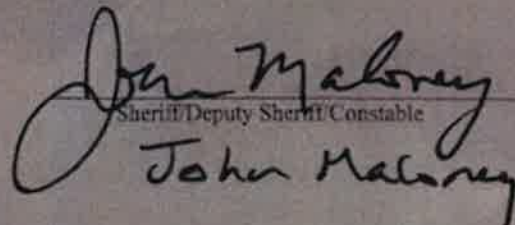 John Maloney
Sheriff/Deputy Sheriff/Constable
John Maloney